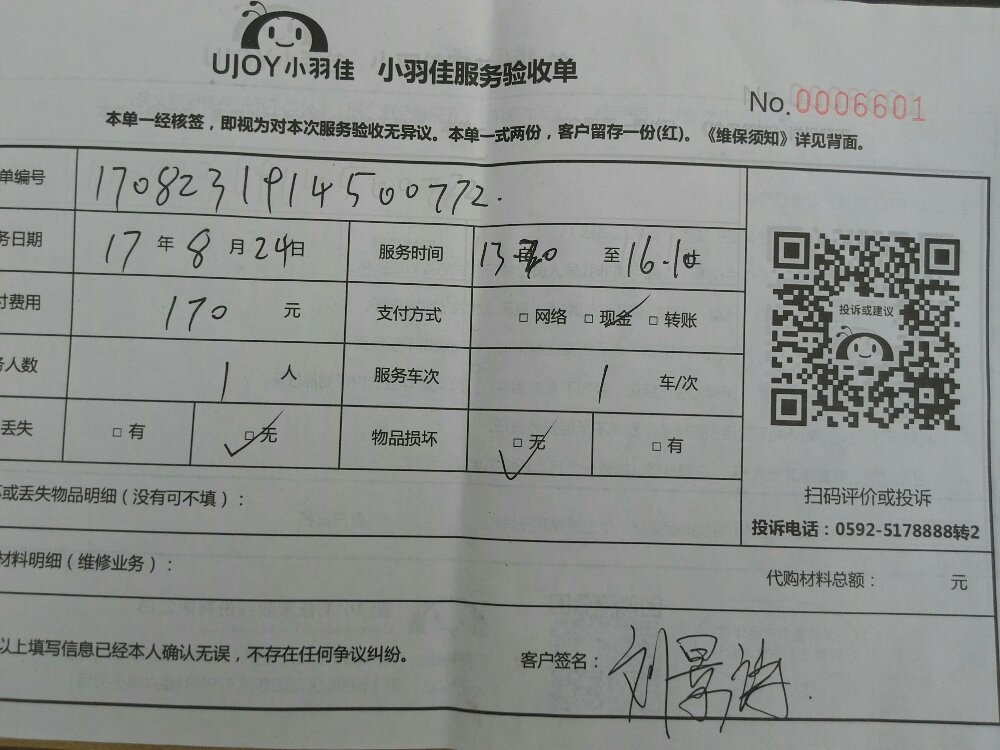 UJOY小羽佳 小羽佳服务验收单
No.0006601
本单一经核签，即视为对本次服务验收无异议。本单一式两份，客户留存一份(红)。《维保须知》详见背面。
单编号 1708231914500772.
务日期 17 年 8 月 24日 服务时间 13 至 16.10
付费用 170 元 支付方式 □ 网络 □ 现金 □ 转账
务人数 1 人 服务车次 1 车/次
丢失 □ 有 □ 无 物品损坏 □ 无 □ 有
投诉或建议
扫码评价或投诉
投诉电话：0592-5178888转2
或丢失物品明细（没有可不填）：
材料明细（维修业务）： 代购材料总额： 元
以上填写信息已经本人确认无误，不存在任何争议纠纷。 客户签名：刘景